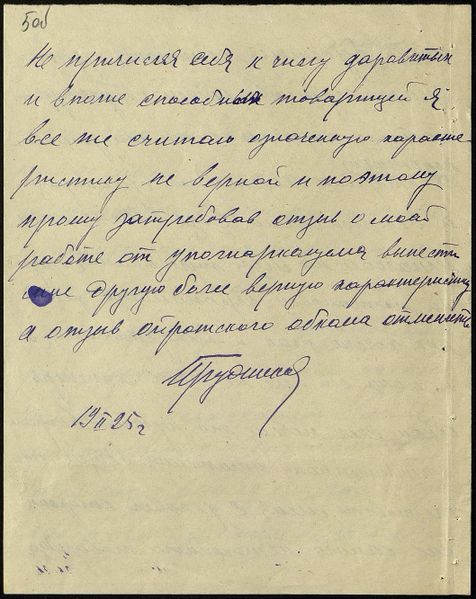 50об
Не причисляя себя к числу даровитых
и вполне способных товарищей я
все же считаю означенную характе-
ристику не верной и поэтому
прошу затребовав отзыв о моей
работе от упогнаркомзема вынести
мне другую более верную характеристику
а отзыв ойратского обкома отменить
19/II 25 г